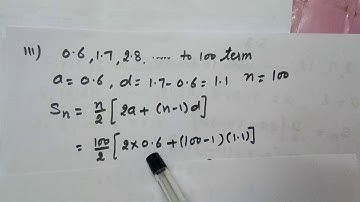 iii) 0.6, 1.7, 2.8, ..... to 100 term
a = 0.6, d = 1.7 - 0.6 = 1.1 n = 100
Sn = n/2 [2a + (n-1)d]
= 100/2 [2 × 0.6 + (100-1)(1.1)]